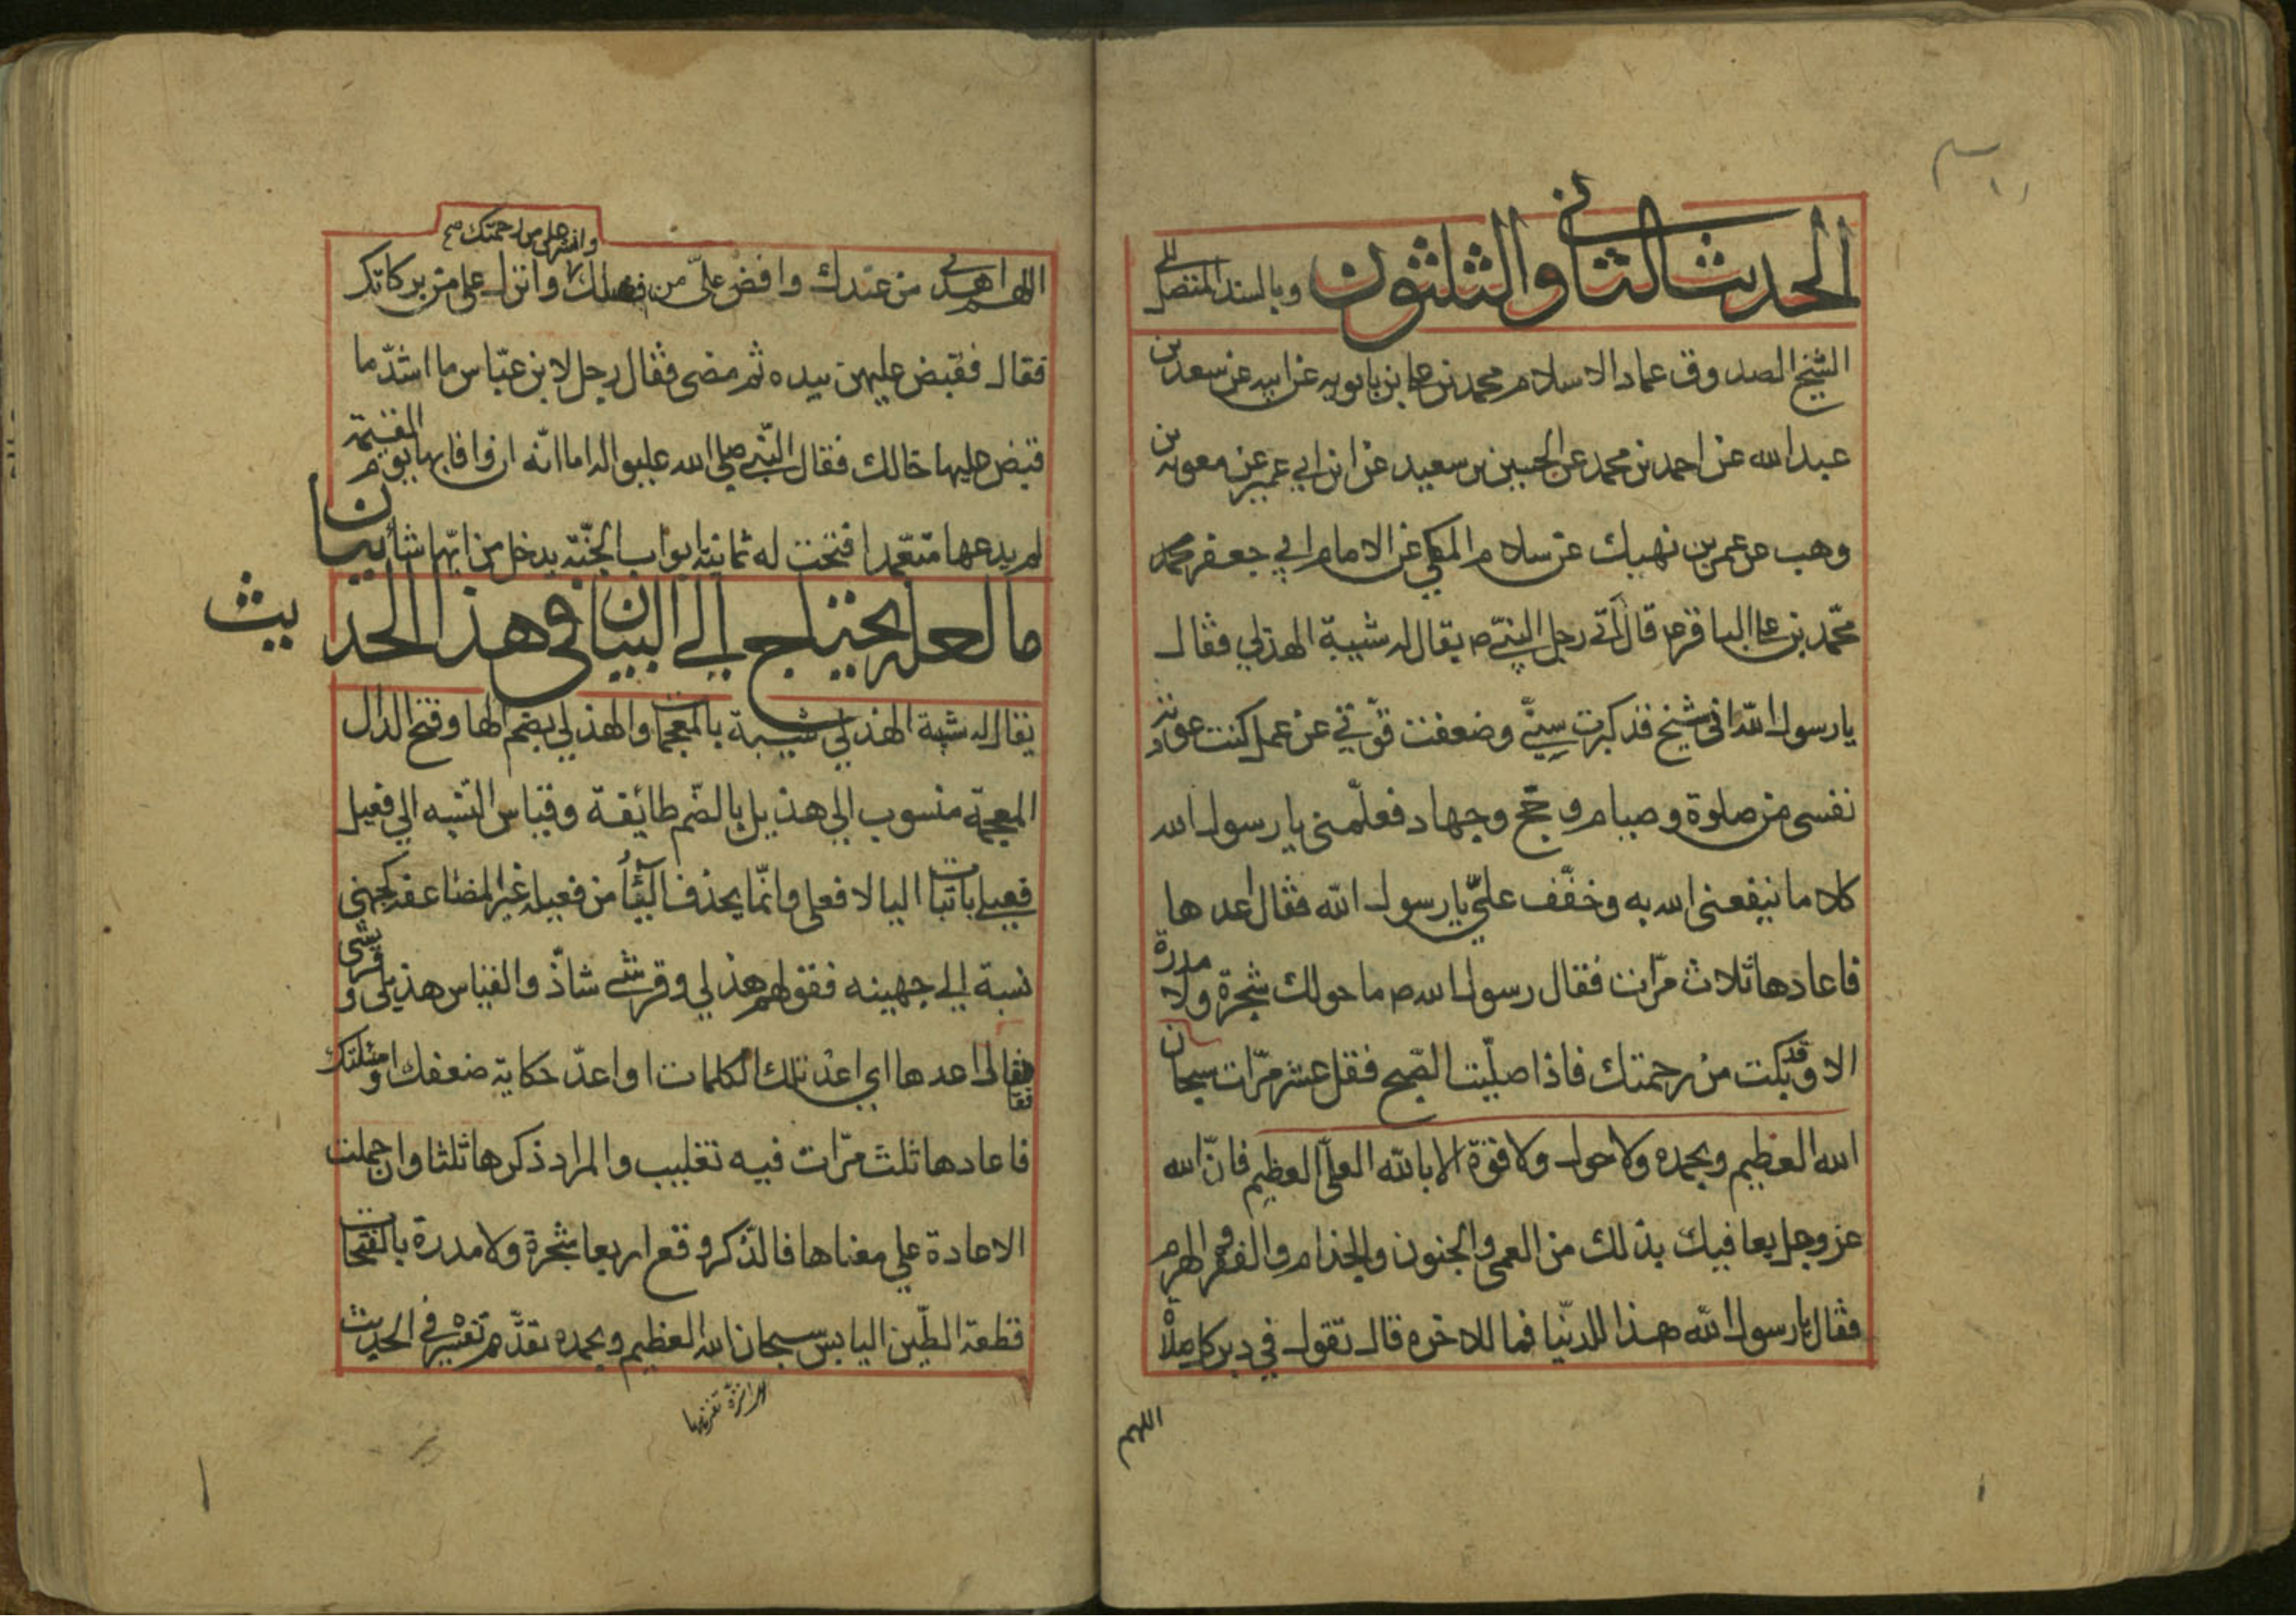 الحديث الثاني والثلثون وبالسند المتصل الى
الشيخ الصدوق عماد الاسلام محمد بن علي بن بابويه عن ابيه عن سعد بن
عبد الله عن احمد بن محمد عن الحسين بن سعيد عن ابن ابي عمير عن معوية بن
وهب عن عمر بن نهيك عن سلام المكي عن الامام ابي جعفر محمد
محمّد بن علي الباقر ع قال اتى رجل النبيّ ص يقال له شيبة الهذلي فقال
يا رسول الله اني شيخ قد كبرت سنّي وضعفت قوّتي عن عمل كنت عودته
نفسي من صلوة وصيام وحجّ وجهاد فعلّمني يا رسول الله
كلاما ينفعني الله به وخفّف عليّ يا رسول الله فقال اعدها
فاعادها ثلاث مرّات فقال رسول الله ص ما حولك شجرة ولا مدرة
الا وقد بكت من رحمتك فاذا صلّيت الصّبح فقل عشر مرّات سبحان
الله العظيم وبحمده ولا حول ولا قوّة الا بالله العليّ العظيم فانّ الله
عز وجل يعافيك بذلك من العمى والجنون والجذام والفقر والهرم
فقال يا رسول الله هذا للدّنيا فما للاخره قال تقول في دبر كل صلاة
اللهم
وانشر علي من رحمتك صح
اللهم اهدني من عندك وافض عليّ من فضلك وانزل علي من بركاتك
فقال فقبض عليهن بيده ثم مضى فقال رجل لابن عبّاس ما اشدّ ما
قبض عليها خالك فقال النّبي صلى الله عليه واله اما انّه ان وافا بها يوم القيمة
لم يدعها متعمّدا فتحت له ثمانية ابواب الجنّة يدخل من ايّها شاء بيان
ما لعله يحتاج الى البيان في هذا الحديث
يقال له شيبة الهذلي شيبة بالمعجمات والهذلي بضم الها وفتح الدال
المعجمة منسوب الى هذيل بالضّم طائفة وقياس النسبه الى فعيل
فعيلي باثبات اليا لا فعلي وانّما يحذف اليّاء من فعيله غير المضاعف كجهني
نسبة الى جهينه فقولهم هذلي وقرشي شاذّ والقياس هذيلي وقريشي
فقال اعدها اي اعد تلك الكلمات او اعدّ حكاية ضعفك ومسئلتك
فاعادها ثلث مرّات فيه تغليب والمراد ذكرها ثلثا وان حملت
الاعادة على معناها فالذّكر وقع اربعا شجرة ولا مدرة بالفتحات
قطعة الطّين اليابس سبحان الله العظيم وبحمده تقدّم تفسيره في الحديث